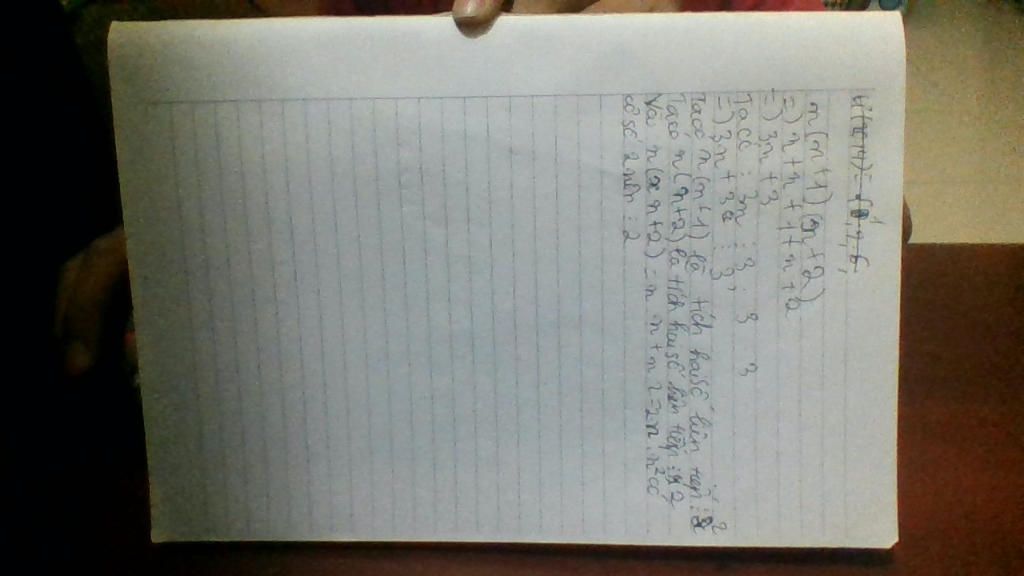 n(n+1)(n+2)
=) n+n+1+n+2
=) 3n+3
Ta có : 3n ⋮ 3, 3 ⋮ 3
=) 3n+3 ⋮ 3
Ta có n(n+1) là tích hai số liên tiếp ⋮ 2
Ta có n(n+2) là tích hai số liên tiếp ⋮ 2
Và n(n+2) = n n+n 2=2n.n² có
có số 2 nên ⋮ 2